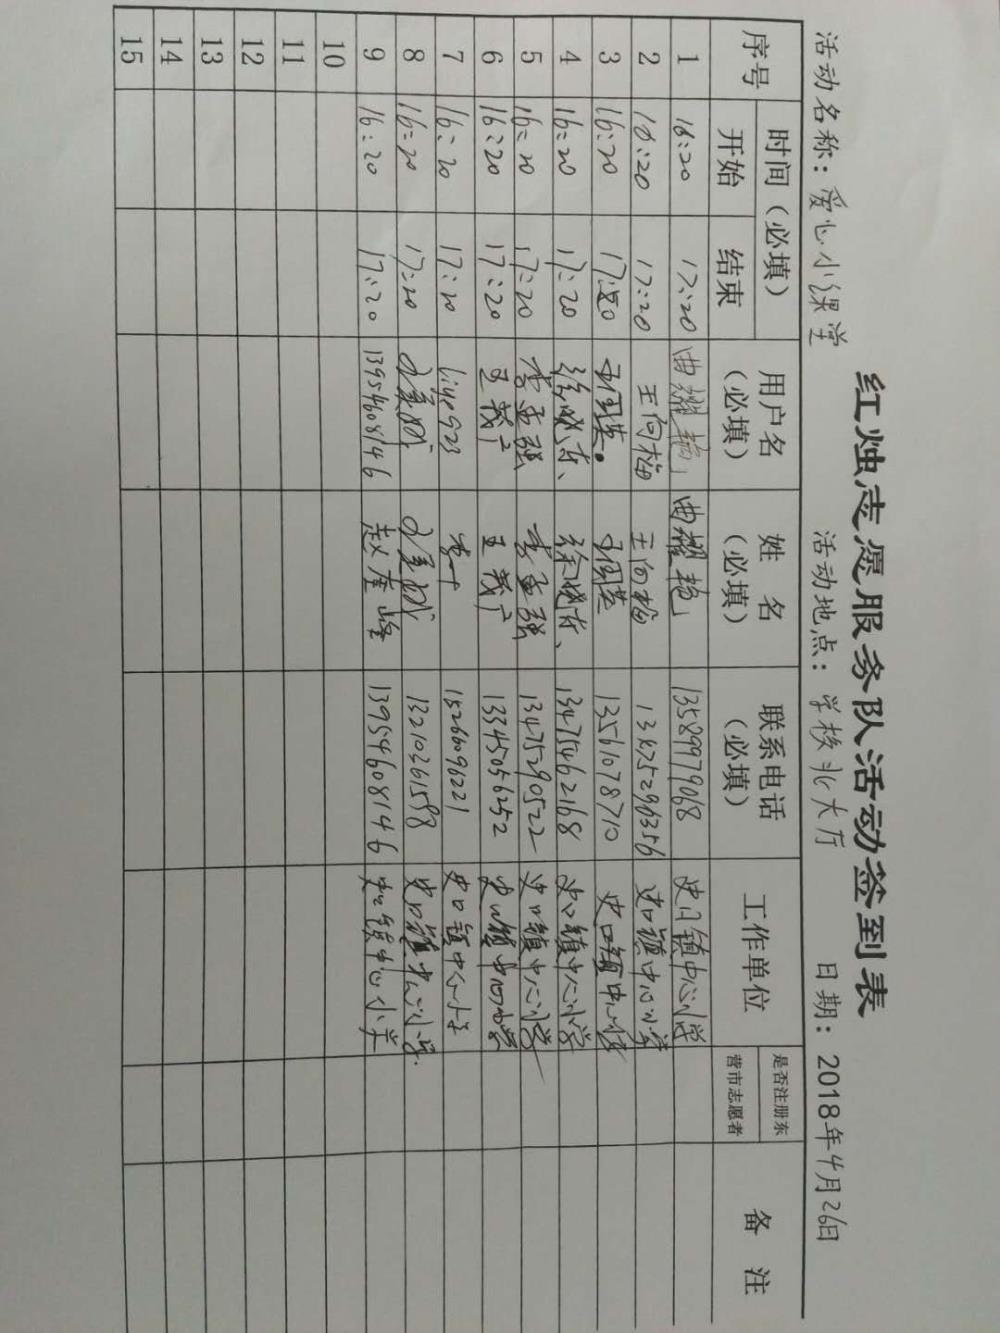 红烛志愿服务队活动签到表
活动名称：爱心小课堂 活动地点：学校北大厅 日期：2018年4月26日
序号 时间（必填） 用户名（必填） 姓名（必填） 联系电话（必填） 工作单位 是否注册东营市志愿者 备注
开始 结束
1 16:20 17:20 曲耀艳 曲耀艳 13589979068 史口镇中心小学
2 16:20 17:20 王向梅 王向梅 13475296356 史口镇中心小学
3 16:20 17:20 13561078710 史口镇中心小学
4 16:20 17:20 徐晓芳 徐晓芳 13475462168 史口镇中心小学
5 16:20 17:20 李孟强 李孟强 13475290522 史口镇中心小学
6 16:20 17:20 13345056252 史口镇中心小学
7 16:20 17:20 liye923 15266096221 史口镇中心小学
8 16:20 17:20 13210361588 史口镇中心小学
9 16:20 17:20 13954608146 赵奎峰 13954608146 史口镇中心小学
10
11
12
13
14
15